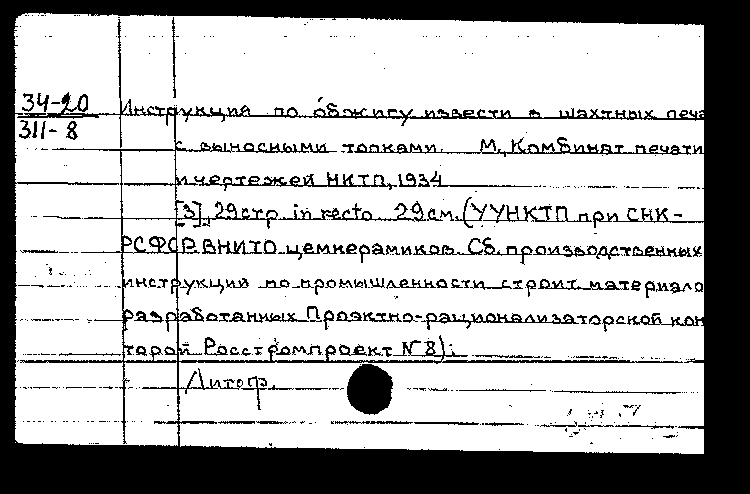 34-20
311-8
Инструкция по обжигу извести в шахтных печа
с выносными топками. М., Комбинат печати
и чертежей НКТП, 1934
[3], 29 стр. in recto 29 см. (УУНКТП при СНК-
РСФСР. ВНИТО цемкерамиков. Сб. производственных
инструкций по промышленности строит. материало
разработанных Проэктно-рационализаторской кон
торой Росстромпроект N 8);
Литогр.